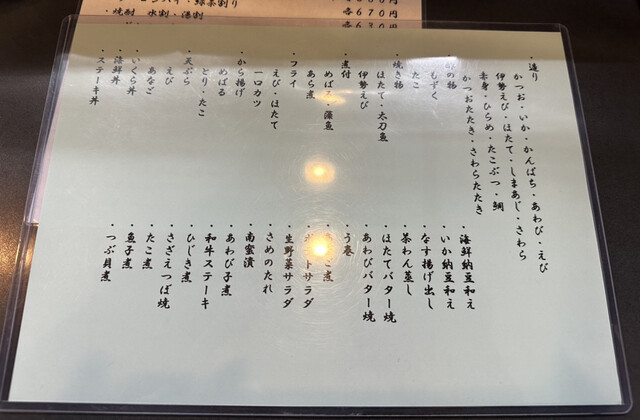 ・造り
かつお・いか・かんぱち・あわび・えび
伊勢えび・ほたて・しまあじ・さわら
赤身・ひらめ・たこぶつ・鯛
かつおたたき・さわらたたき
の物
もずく
たこ
・焼き物
ほたて・太刀魚
伊勢えび
・煮付
めばる・藻魚
あら煮
・フライ
えび・ほたて
一口カツ
・から揚げ
めばる
とり・たこ
・天ぷら
えび
あなご
・いくら丼
・海鮮丼
・ステーキ丼
・海鮮納豆和え
・いか納豆和え
・なす揚げ出し
・茶わん蒸し
・ほたてバター焼
・あわびバター焼
・う巻
こ煮
トサラダ
・生野菜サラダ
・さめのたれ
・南蛮漬
・和牛ステーキ
・あわび子煮
・ひじき煮
・さざえつぼ焼
・たこ煮
・魚子煮
・つぶ貝煮
・焼酎 水割・湯割